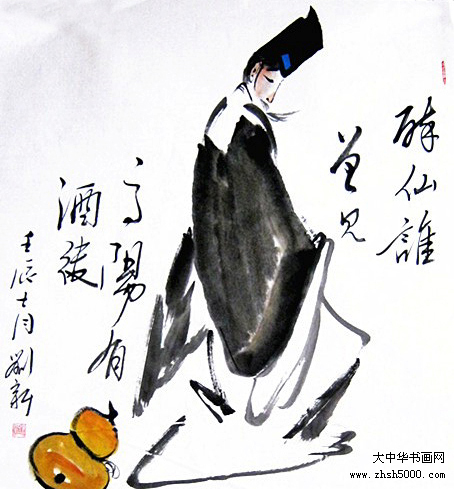 醉仙誰
曾见
高陽有
酒徒
壬辰七月劉新
大中华书画网
www.zhsh5000.com